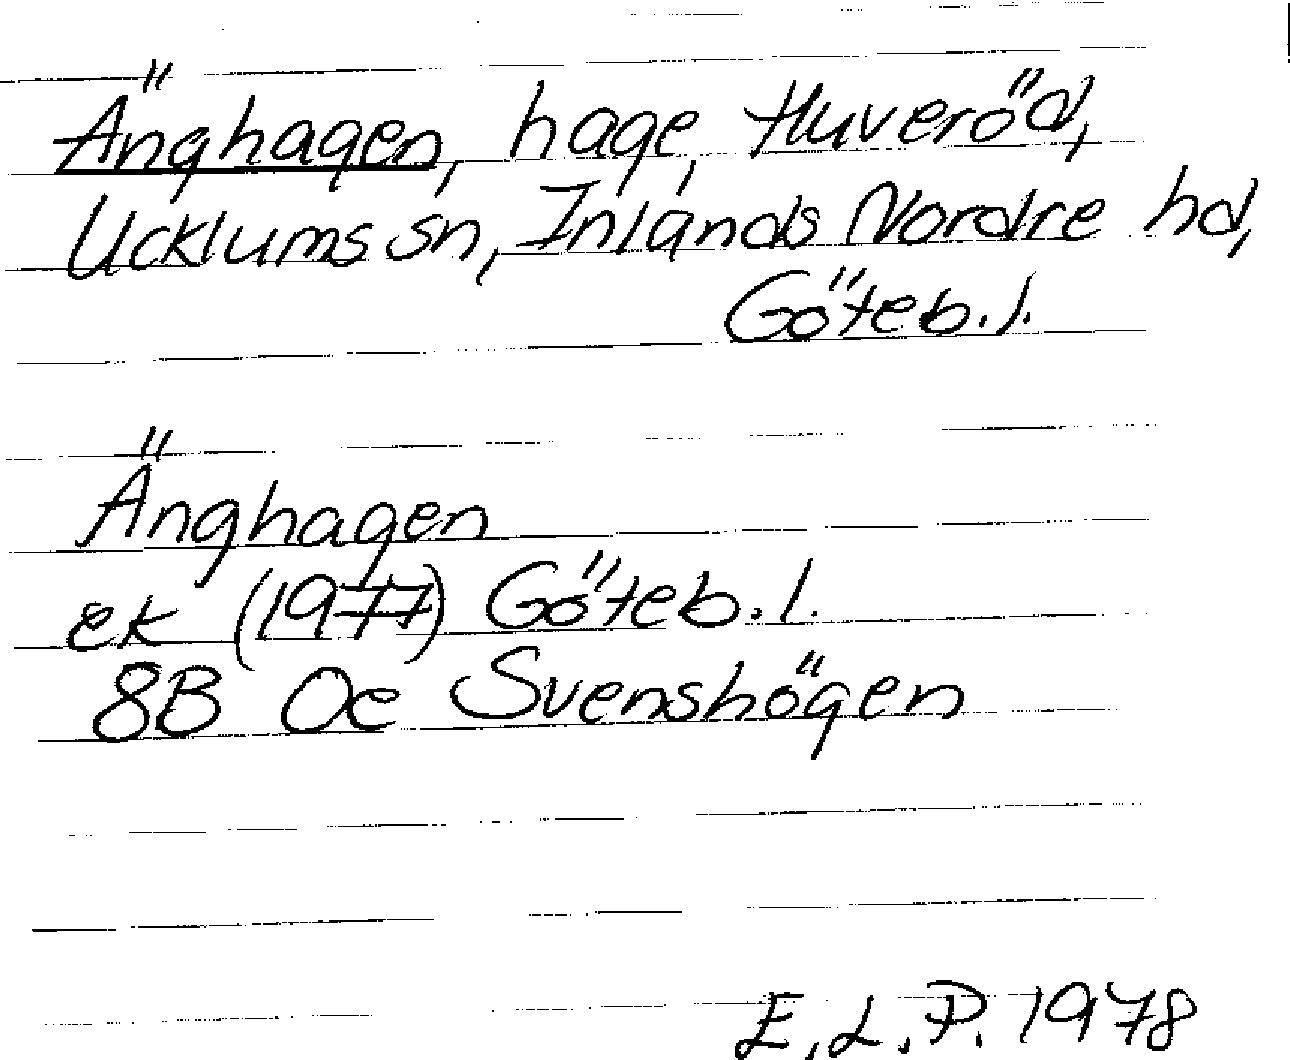 Änghagen, hage, Huveröd,
Ucklums sn, Inlands Nordre hd,
Göteb. l.
Änghagen
ek (1977) Göteb. l.
8B 0e Svenshögen
E. L. P. 1978